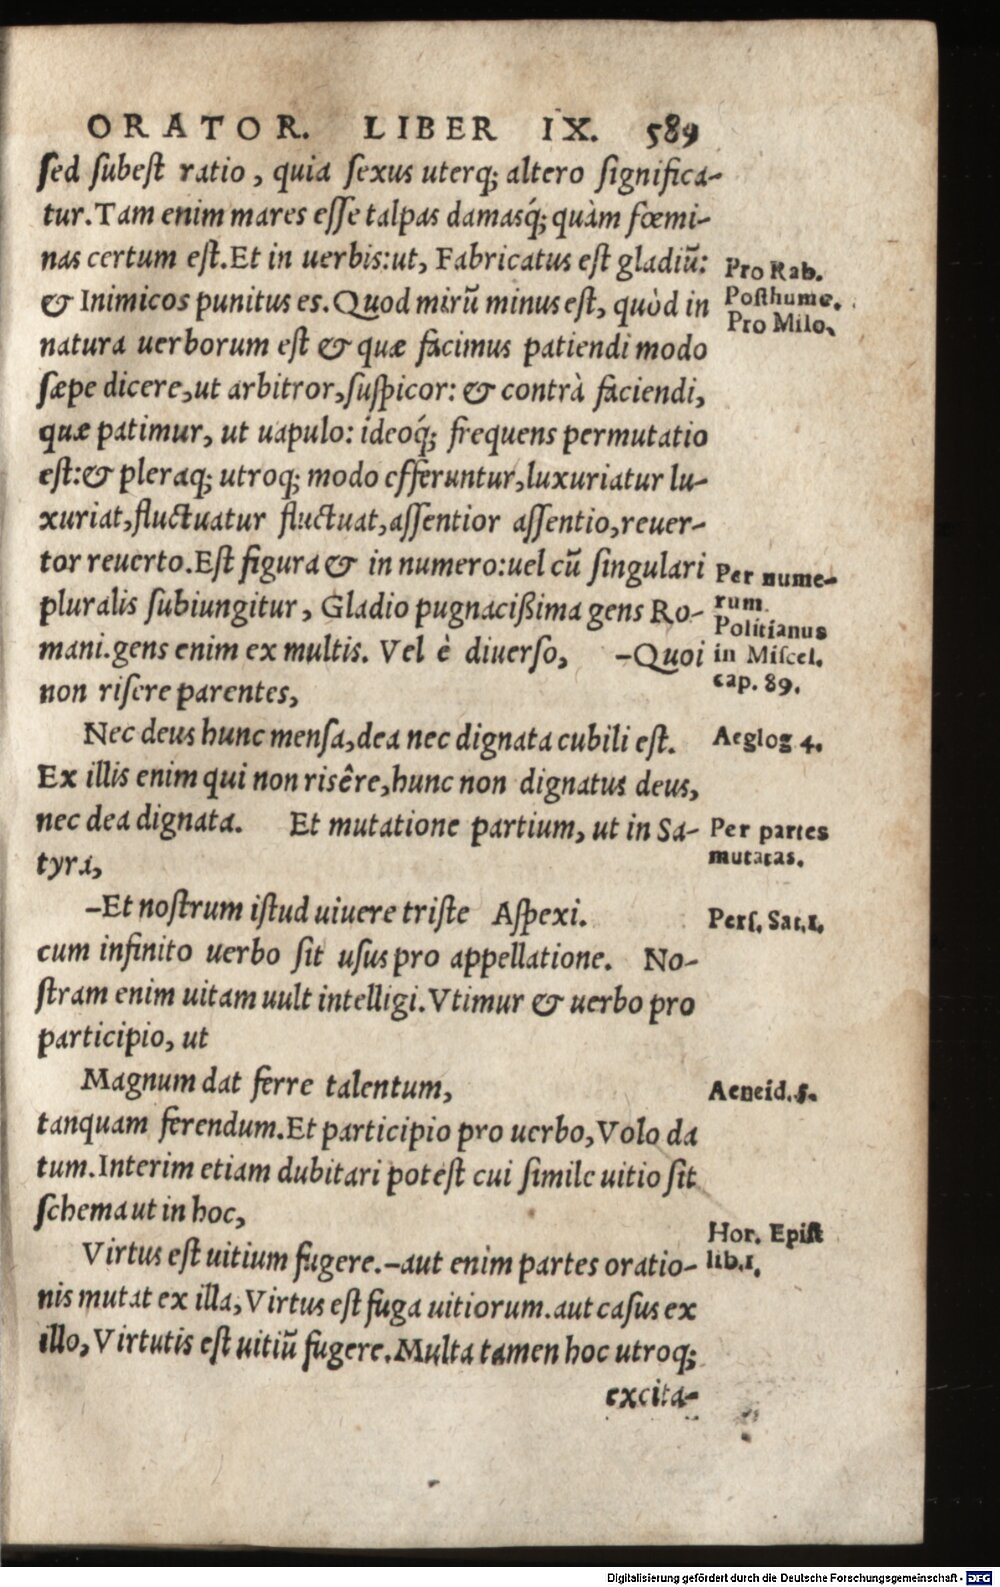 ORATOR. LIBER IX. 589
sed subest ratio, quia sexus uterq; altero significa-
tur. Tam enim mares esse talpas damasq́; quàm fœmi-
nas certum est. Et in uerbis: ut, Fabricatus est gladiū:
& Inimicos punitus es. Quod mirū minus est, quòd in
natura uerborum est & quæ facimus patiendi modo
sæpe dicere, ut arbitror, suspicor: & contrà faciendi,
quæ patimur, ut uapulo: ideoq́; frequens permutatio
est: & pleraq; utroq; modo efferuntur, luxuriatur lu-
xuriat, fluctuatur fluctuat, assentior assentio, reuer-
tor reuerto. Est figura & in numero: uel cū singulari
pluralis subiungitur, Gladio pugnacißima gens Ro-
mani. gens enim ex multis. Vel è diuerso, -Quoi
non risere parentes,
Nec deus hunc mensa, dea nec dignata cubili est.
Ex illis enim qui non risêre, hunc non dignatus deus,
nec dea dignata. Et mutatione partium, ut in Sa-
tyra,
-Et nostrum istud uiuere triste Aspexi.
cum infinito uerbo sit usus pro appellatione. No-
stram enim uitam uult intelligi. Vtimur & uerbo pro
participio, ut
Magnum dat ferre talentum,
tanquam ferendum. Et participio pro uerbo, Volo da
tum. Interim etiam dubitari potest cui simile uitio sit
schema ut in hoc,
Virtus est uitium fugere.-aut enim partes oratio-
nis mutat ex illa, Virtus est fuga uitiorum. aut casus ex
illo, Virtutis est uitiū fugere. Multa tamen hoc utroq;
excita-
Pro Rab.
Posthume.
Pro Milo.
Per nume-
rum.
Politianus
in Miscel.
cap. 89.
Aeglog 4.
Per partes
mutatas.
Pers. Sat.1.
Aeneid.5.
Hor. Epist
lib.1.
Digitalisierung gefördert durch die Deutsche Forschungsgemeinschaft - DFG